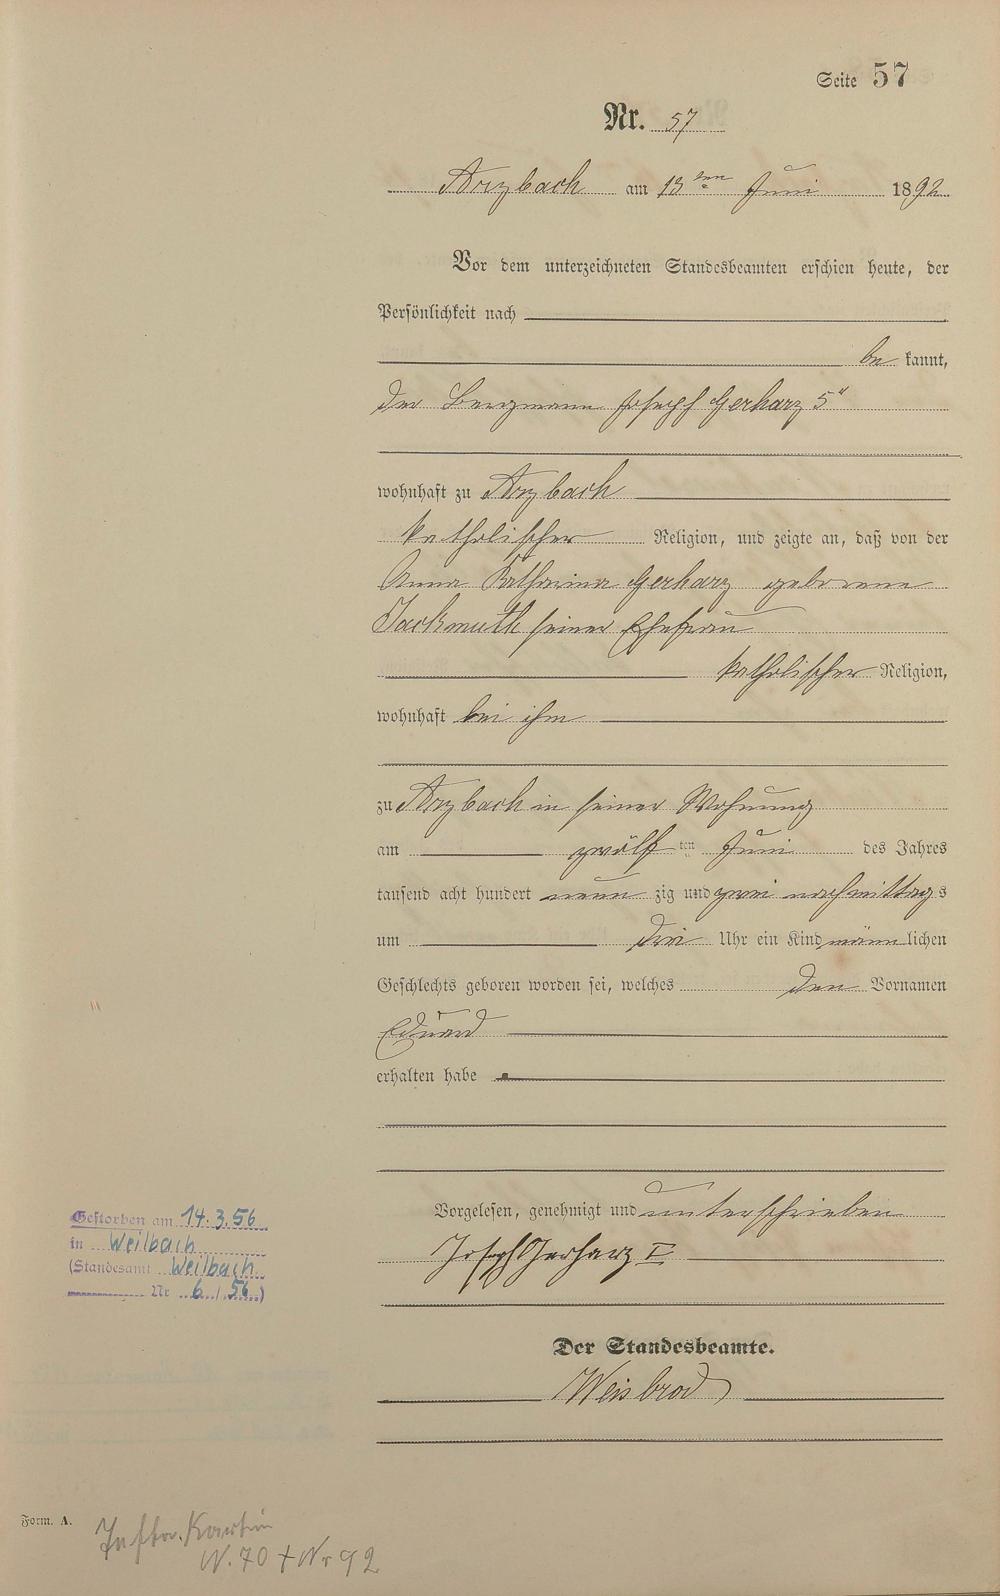 Seite 57
Nr. 57
Arzbach am 13ten Juni 1892
Vor dem unterzeichneten Standesbeamten erschien heute, der
Persönlichkeit nach
be kannt,
der Bergmann Joseph Gerharz 5"
wohnhaft zu Arzbach
katholischer Religion, und zeigte an, daß von der
Anna Katharina Gerharz geborene
Jackmuth seiner Ehefrau
katholischer Religion,
wohnhaft bei ihm
zu Arzbach in seiner Wohnung
am zwölf ten Juni des Jahres
tausend acht hundert neun zig und zwei nachmittags
um drei Uhr ein Kind männ lichen
Geschlechts geboren worden sei, welches den Vornamen
Eduard
erhalten habe
Vorgelesen, genehmigt und unterschrieben
Joseph Gerharz V
Der Standesbeamte.
Weisbrod
Gestorben am 14.3.56
in Weilbach
(Standesamt Weilbach
Nr 6 / 56)
Form. A.
N. 70 + Nr 92